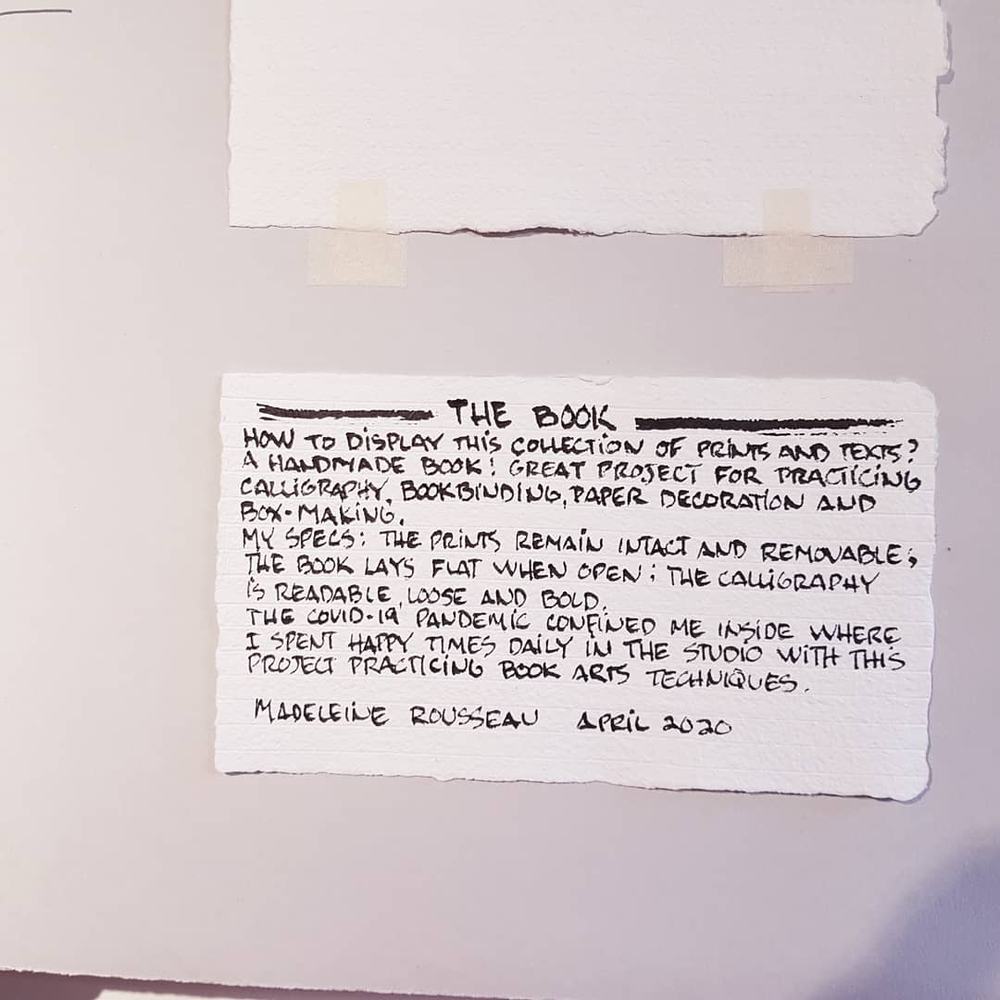 THE BOOK
HOW TO DISPLAY THIS COLLECTION OF PRINTS AND TEXTS?
A HANDMADE BOOK! GREAT PROJECT FOR PRACTICING
CALLIGRAPHY, BOOKBINDING, PAPER DECORATION AND
BOX-MAKING.
MY SPECS: THE PRINTS REMAIN INTACT AND REMOVABLE;
THE BOOK LAYS FLAT WHEN OPEN; THE CALLIGRAPHY
IS READABLE, LOOSE AND BOLD.
THE COVID-19 PANDEMIC CONFINED ME INSIDE WHERE
I SPENT HAPPY TIMES DAILY IN THE STUDIO WITH THIS
PROJECT PRACTICING BOOK ARTS TECHNIQUES.
MADELEINE ROUSSEAU APRIL 2020